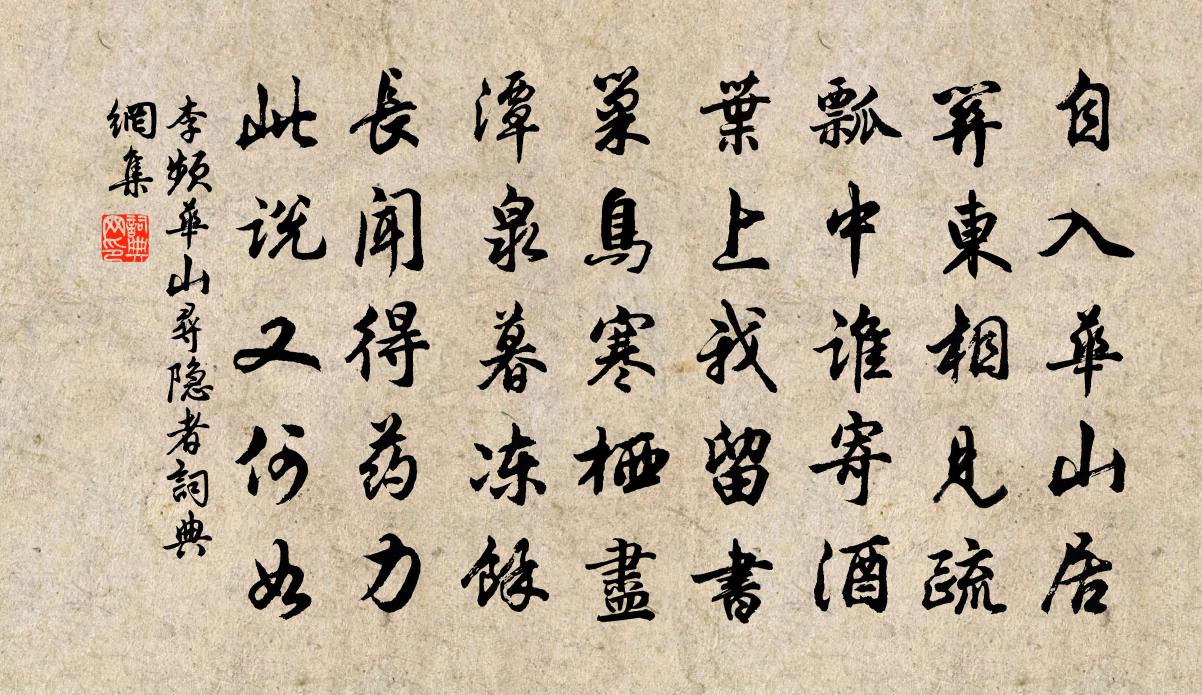 自入華山居
關東相見疏
瓢中誰寄酒
葉上我留書
巢鳥寒栖盡
潭泉暮冻餘
長聞得药力
此説又何如
李頻華山尋隐者詞典
網集
詞典网印